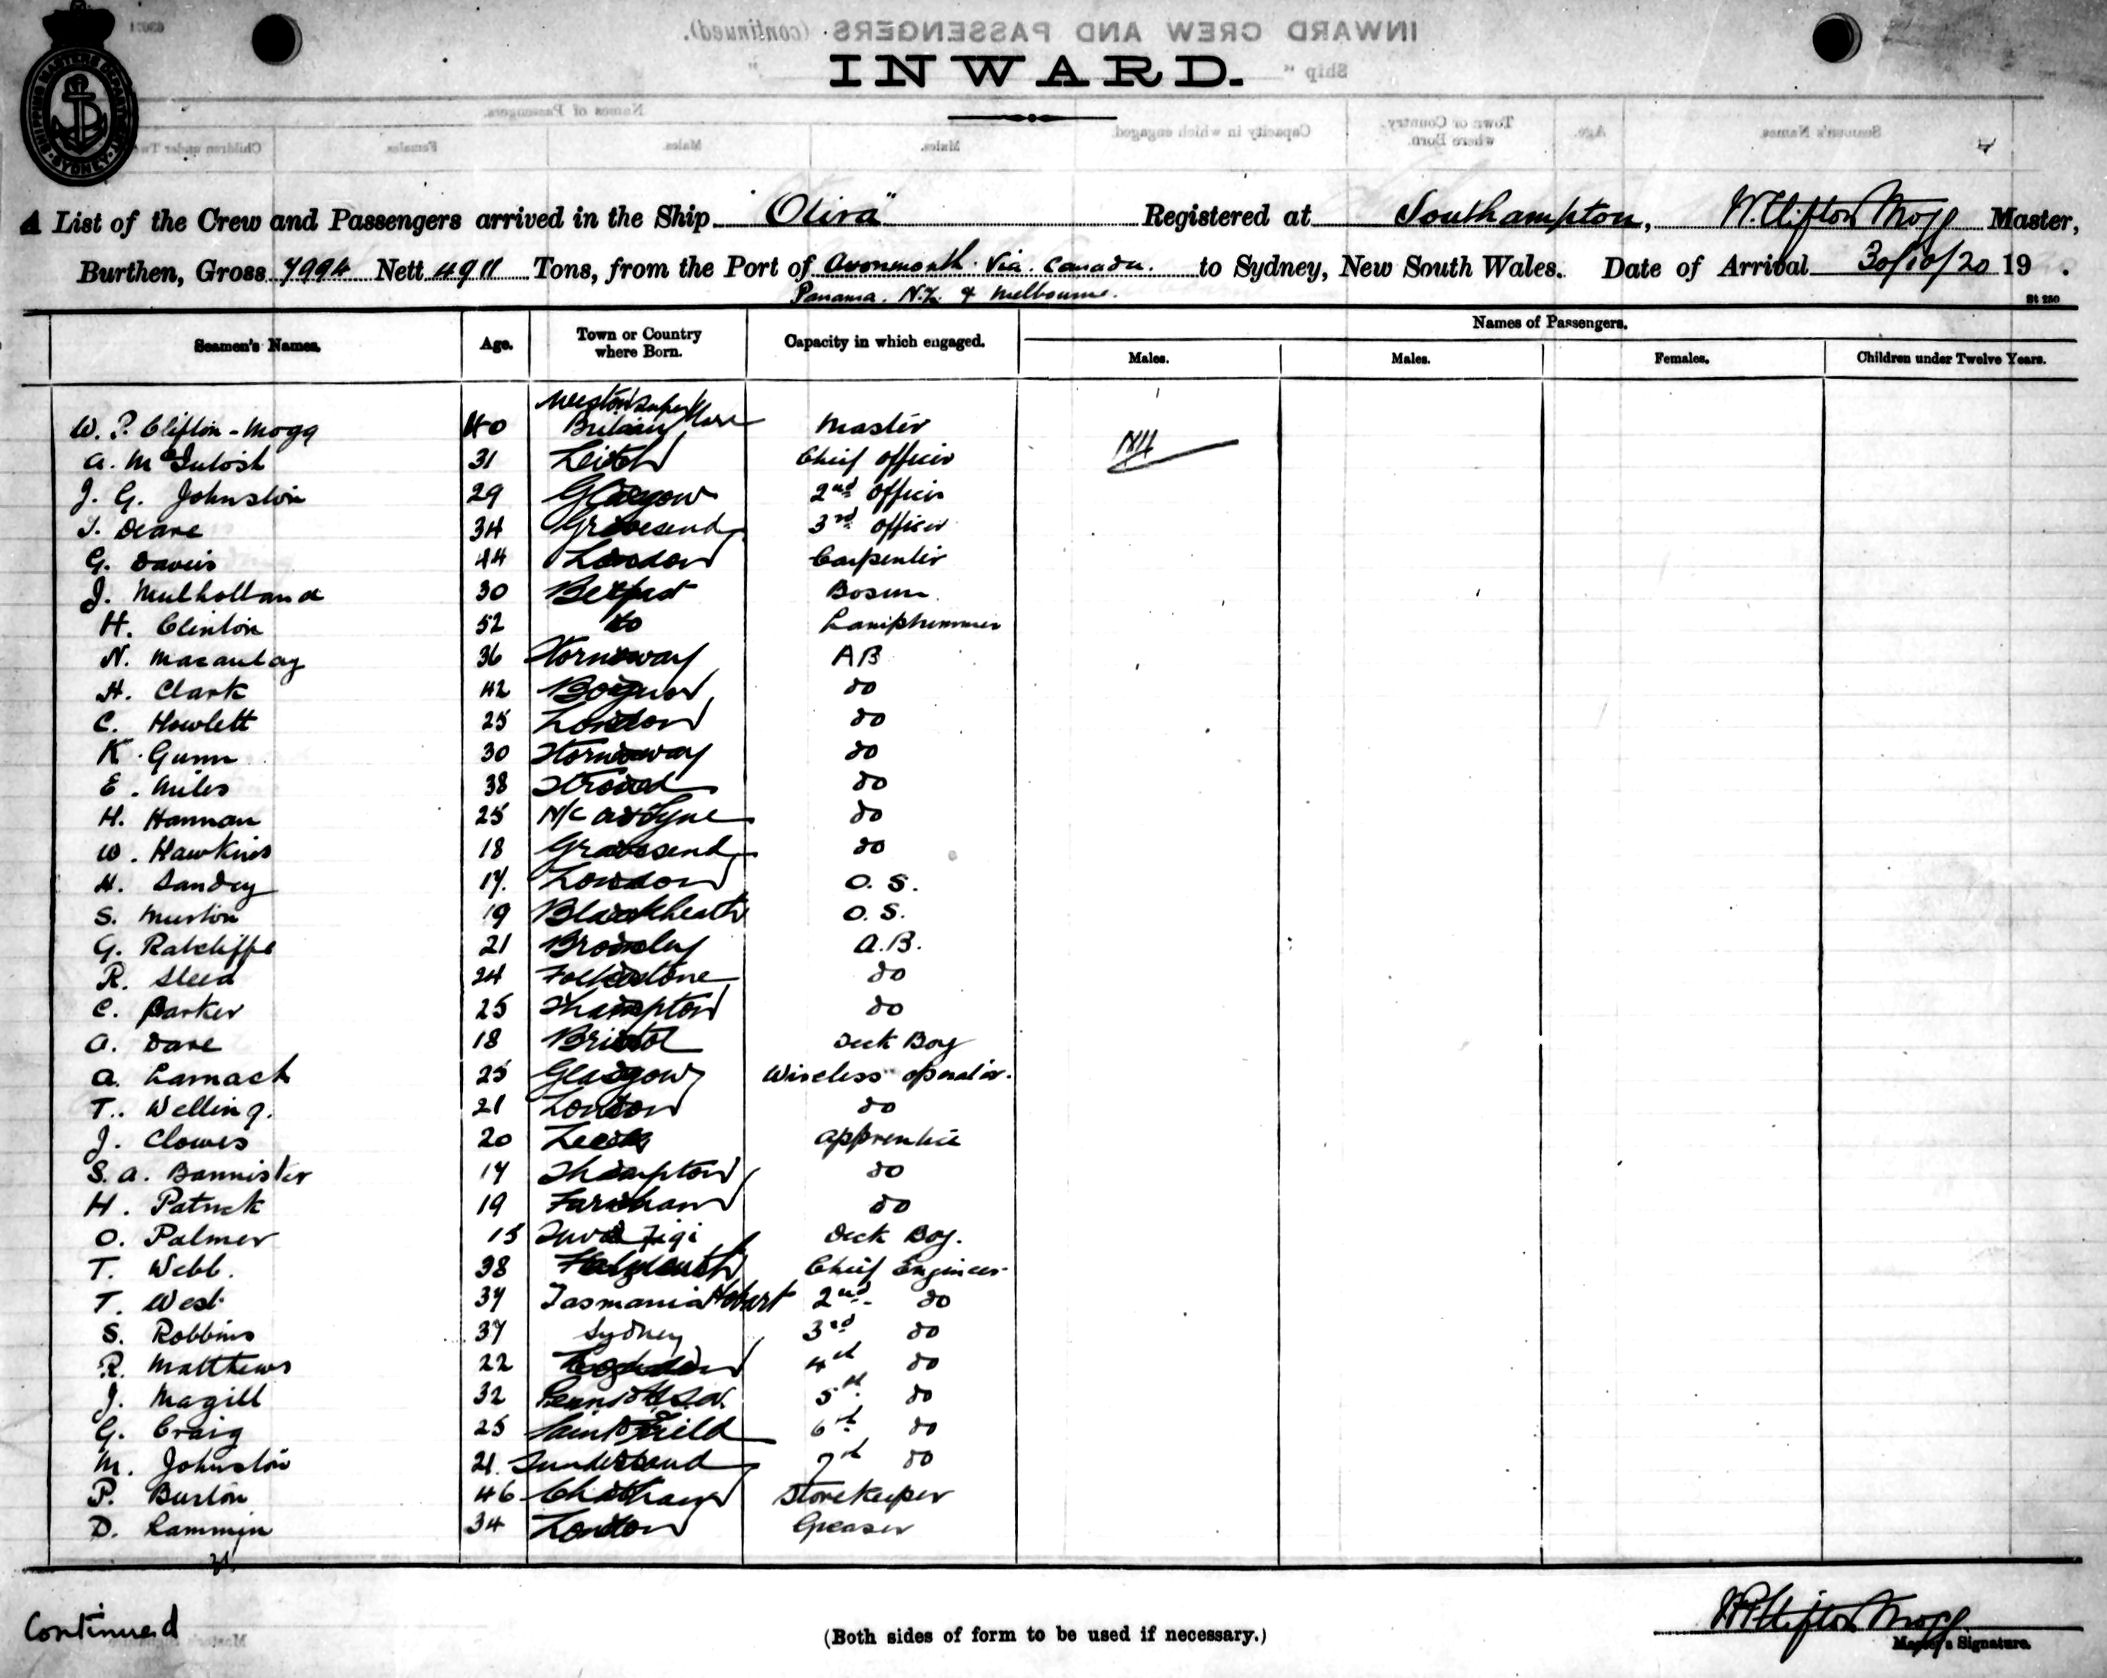 INWARD CREW AND PASSENGERS (continued).
INWARD.
Ship "
SHIPPING MASTERS DEPARTMENT SYDNEY
Names of Passengers.
Seamen's Names. Age. Town or Country where Born. Capacity in which engaged. Males. Males. Females. Children under Twelve Years.
A List of the Crew and Passengers arrived in the Ship "Otira" Registered at Southampton, W. Clifton Mogg Master,
Burthen, Gross 7994 Nett 4911 Tons, from the Port of Avonmouth Via. Canada. to Sydney, New South Wales. Date of Arrival 30/10/20 19 .
Panama. N.Z. & Melbourne.
St 250
Seamen's Names. Age. Town or Country where Born. Capacity in which engaged. Names of Passengers.
Males. Males. Females. Children under Twelve Years.
Weston Super Mare
W. P. Clifton-Mogg 40 Britain Master
Nil
A. McIntosh 31 Leith Chief Officer
J. G. Johnston 29 Glasgow 2nd Officer
Deane 34 Gravesend 3rd Officer
G. Davis 44 London Carpenter
J. Mulholland 30 Belfast Bosun
H. Clinton 52 do Lamptrimmer
N. Macaulay 36 Stornoway AB
H. Clark 42 Bognor do
C. Howlett 25 London do
K. Gunn 30 Stornoway do
E. Miles 38 Stroud do
H. Hannan 25 N/C on Tyne do
W. Hawkins 18 Gravesend do
H. Sandey 17. London O. S.
S. Murton 19 Blackheath O. S.
G. Ratcliffe 21 Bromley A.B.
R. Sleed 24 Folkestone do
C. Parker 25 Shampton do
A. Dare 18 Bristol Deck Boy
A. Larnach 25 Glasgow Wireless operator.
T. Welling. 21 London do
J. Clowes 20 Leeds Apprentice
S. A. Bannister 17 Shampton do
H. Patrick 19 Fareham do
O. Palmer 15 Suva Figi Deck Boy.
T. Webb. 38 Falmouth Chief Engineer
T. West 37 Tasmania Hobart 2nd do
S. Robbins 37 Sydney 3rd do
R. Matthews 22 London 4th do
J. Magill 32 U.S.A. 5th do
G. Craig 25 Saintfield 6th do
M. Johnston 21. Sunderland 7th do
P. Burton 46 Chatham Storekeeper
D. Lammin 34 London Greaser
Continued
(Both sides of form to be used if necessary.)
W P Clifton Mogg
Master's Signature.